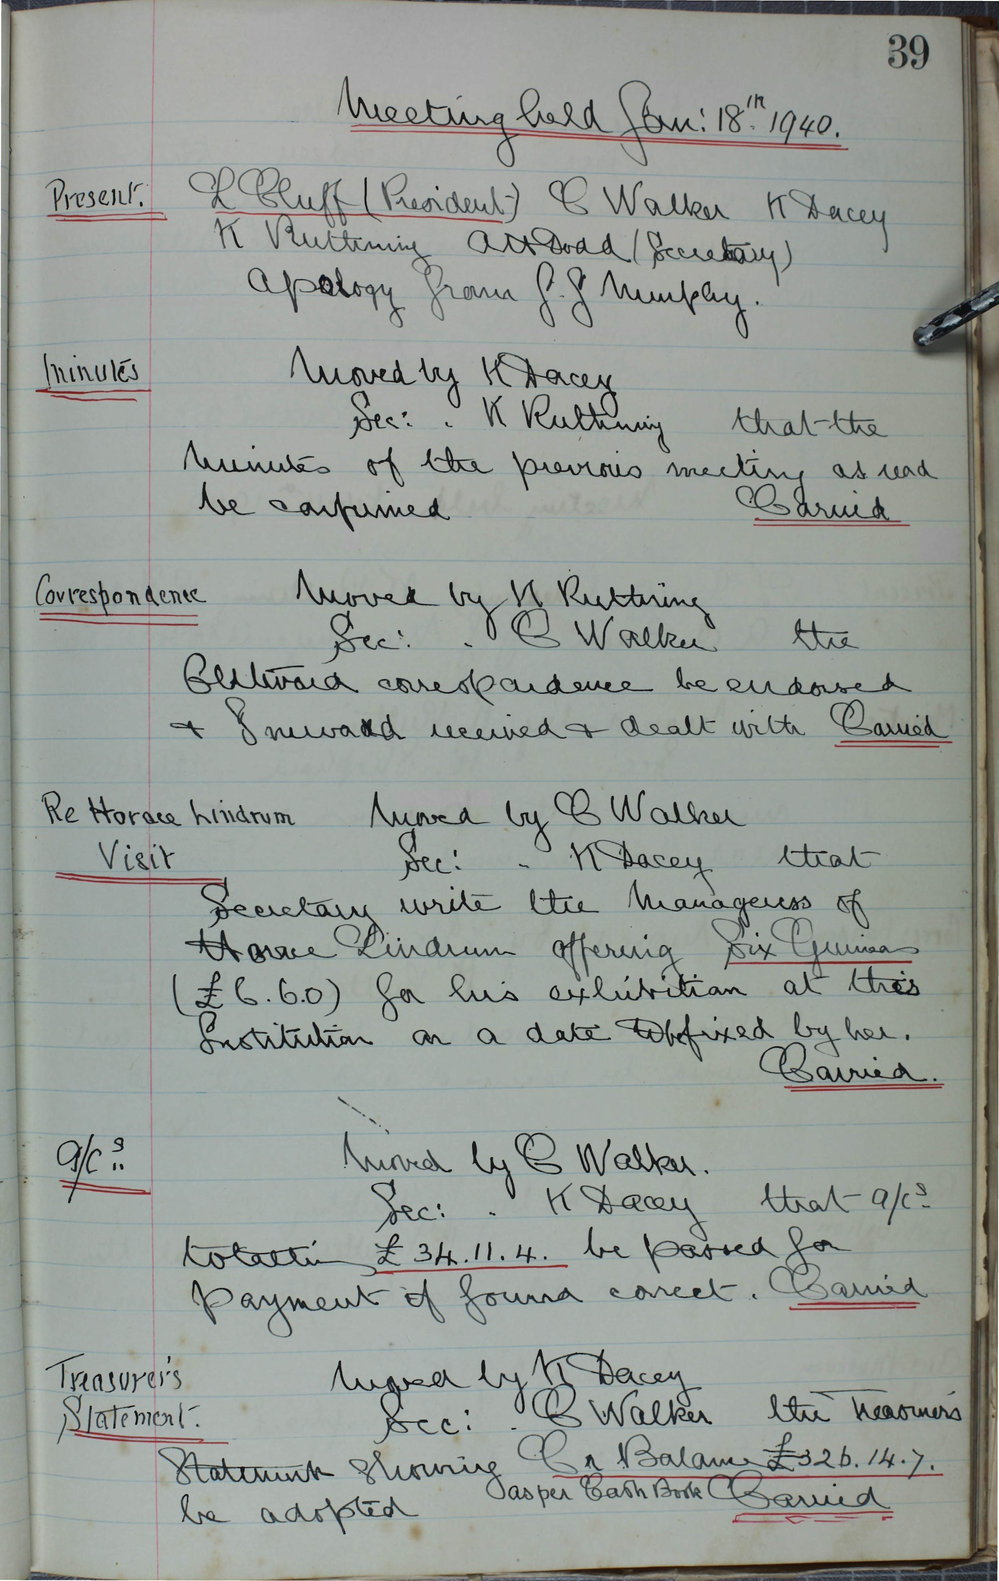 39
Meeting held Jan: 18th 1940.
Present. L Cluff (President) C Walker K Dacey
K Ruttining A H Dodd (Secretary)
Apology from J. J Murphy.
Minutes Moved by K Dacey
Sec: . K Ruttining that the
minutes of the previous meeting as read
be confirmed Carried
Correspondence Moved by K Ruttining
Sec: . C Walker the
Outward correspondence be endorsed
& Inward received & dealt with Carried
Re Horace Lindrum Moved by C Walker
Visit Sec: . K Dacey that
Secretary write the Manageress of
Horace Lindrum offering Six Guineas
(£6.6.0) for his exhibition at this
Institution on a date to be fixed by her.
Carried.
a/cs Moved by C Walker.
Sec: . K Dacey that a/cs
£34.11.4. be passed for
payment if found correct. Carried
Treasurer's Moved by K Dacey
Statement. Sec: . C Walker the Treasurer's
Statement showing Cr Balance £326.14.7.
as per Cash Book
be adopted Carried